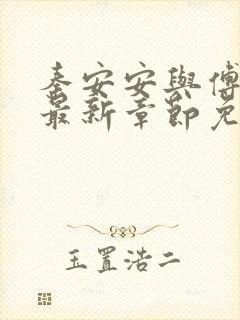 秦安安與傅
最新章節免
玉置浩二